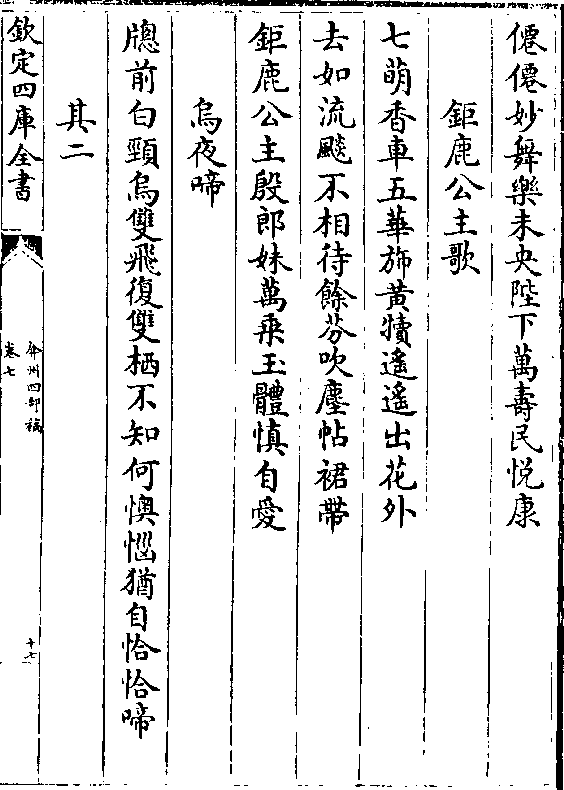 僊僊妙舞樂未央陛下萬壽民悦康
鉅鹿公主歌
七萌香車五華斾黄犢遙遙出花外
去如流飈不相待餘芬吹塵帖裙帶
鉅鹿公主殷郎妹萬乘玉體慎自愛
烏夜啼
牕前白頸烏雙飛復雙栖不知何懊惱猶自恰恰啼
其二
欽定四庫全書
弇州四部稿
卷七
十七